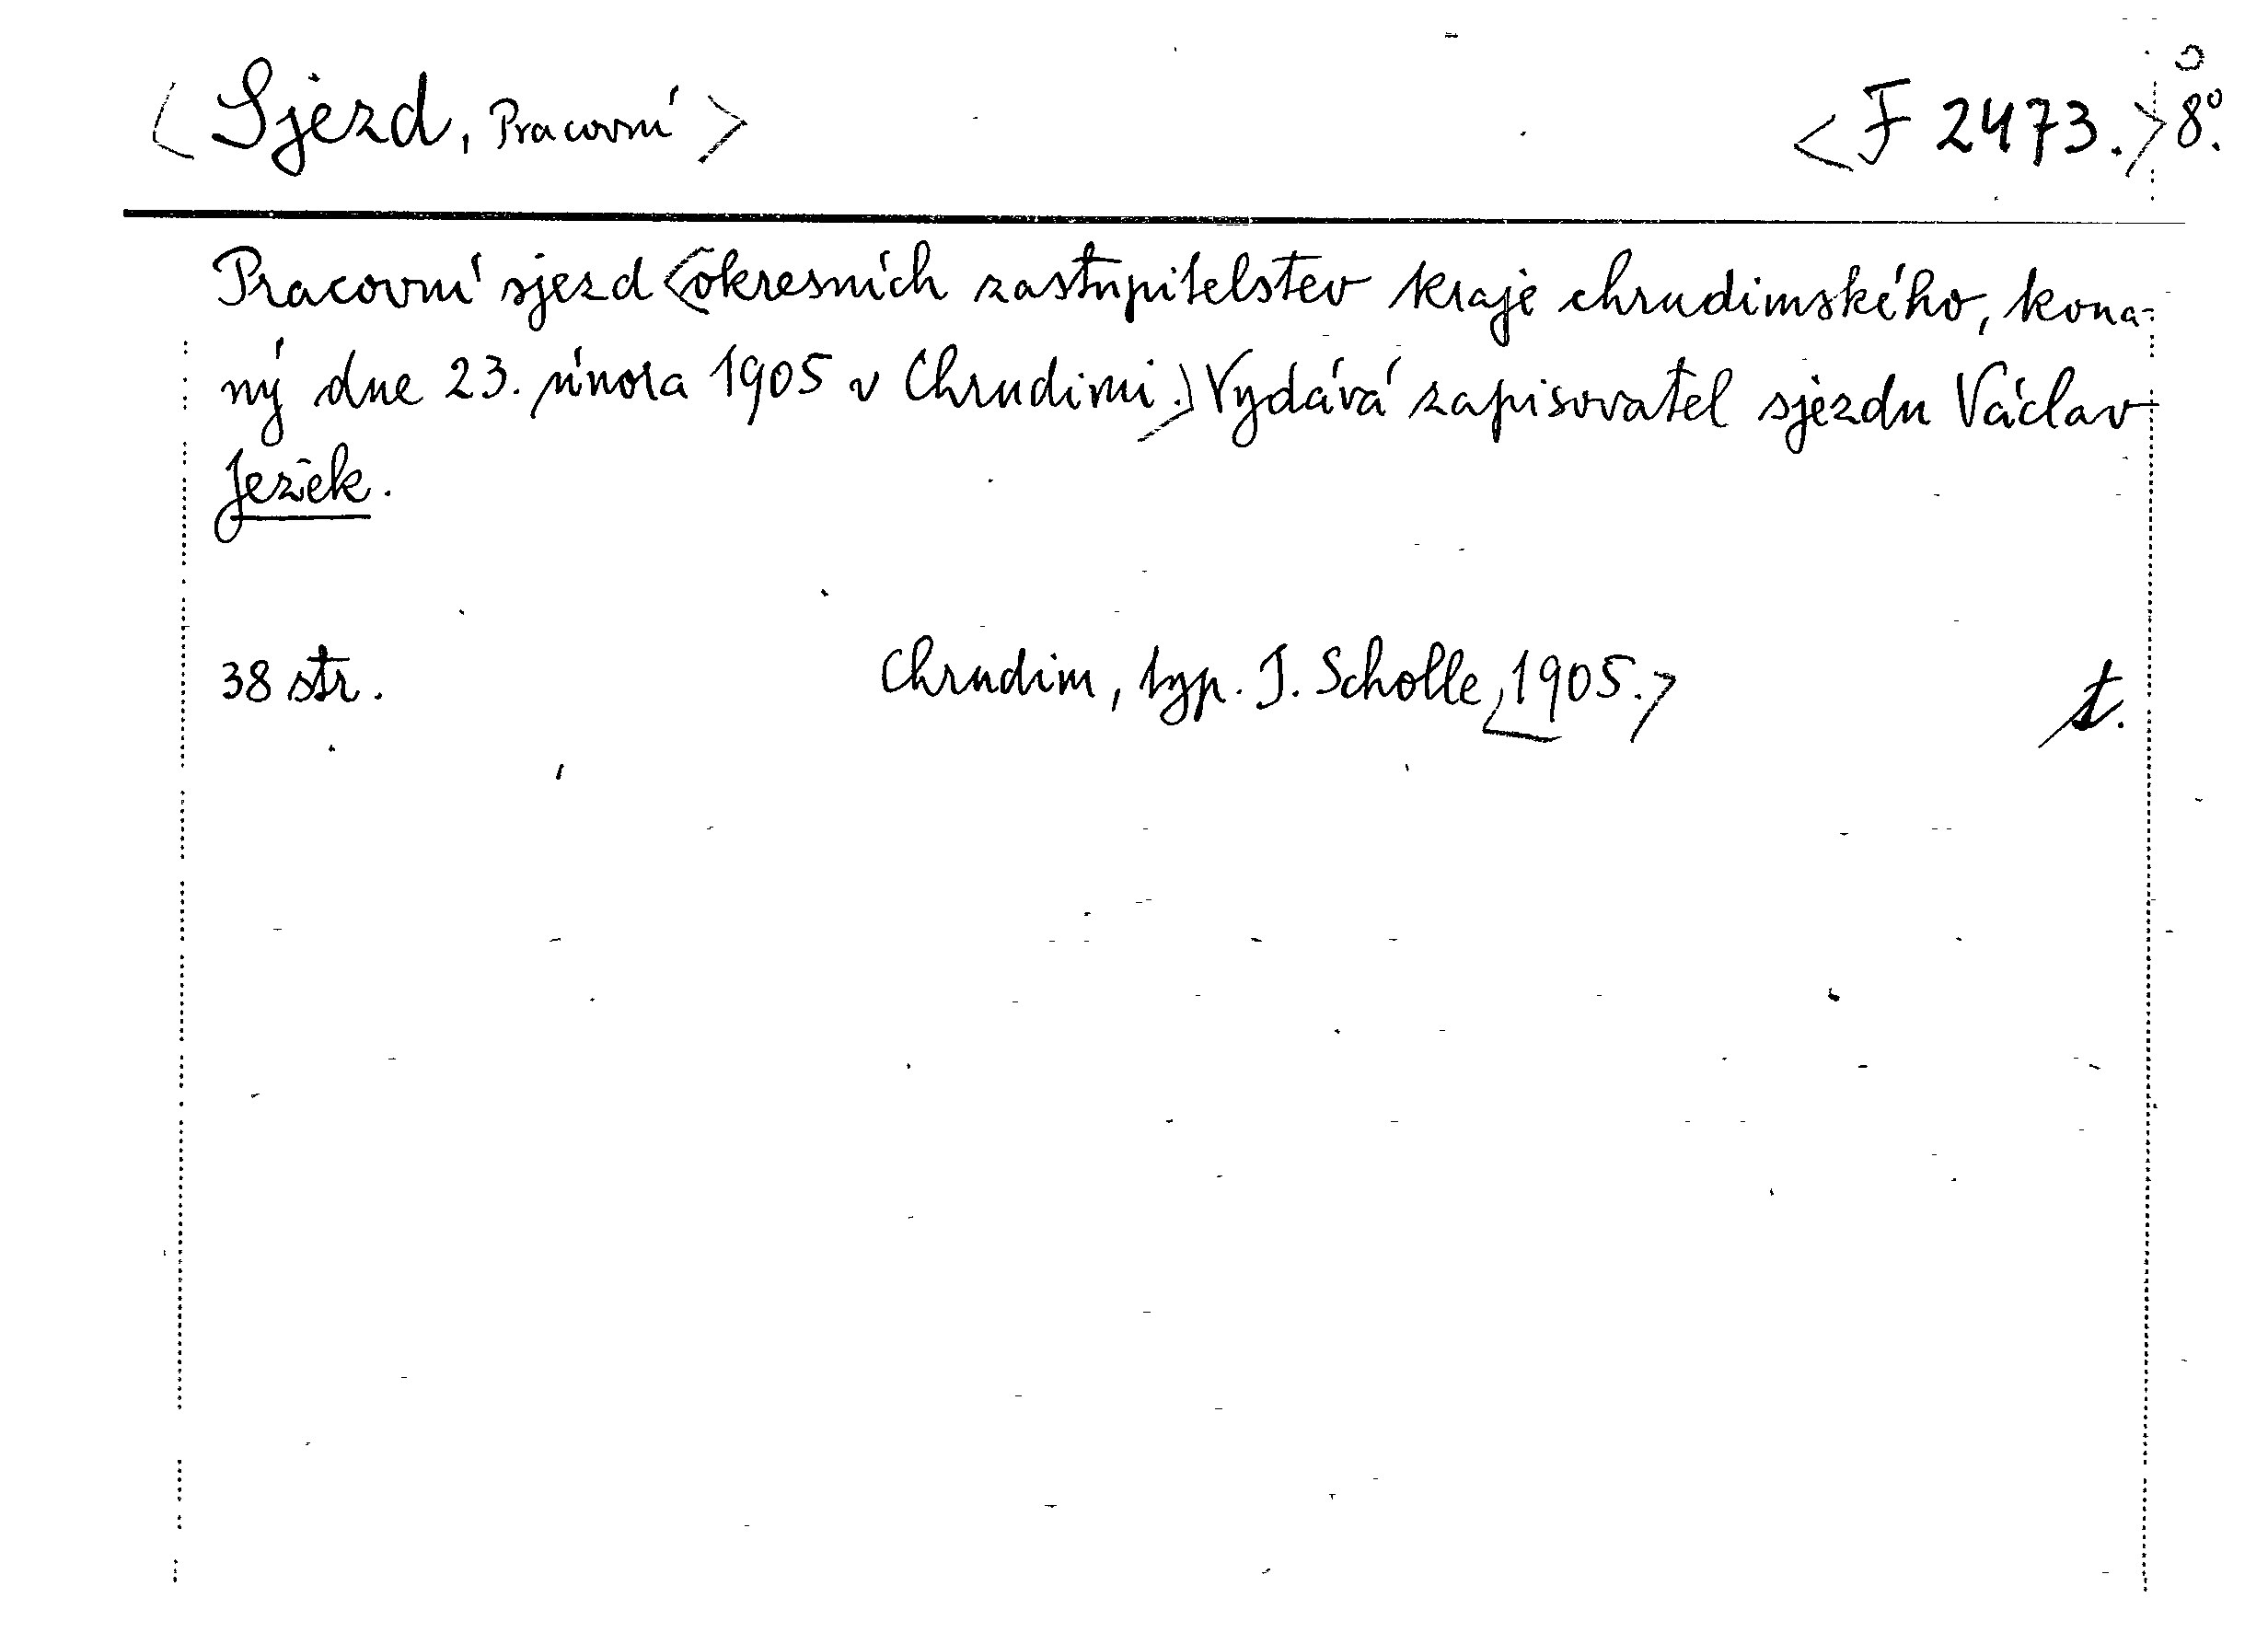 <Sjezd, Pracovní> <F 2473.> 8°.
Pracovní sjezd <okresních zastupitelstev kraje chrudimského, kona-
ný dne 23. února 1905 v Chrudimi.> Vydává zapisovatel sjezdu Václav
Ježek.
38 str. Chrudim, typ. J. Scholle, <1905.> t.